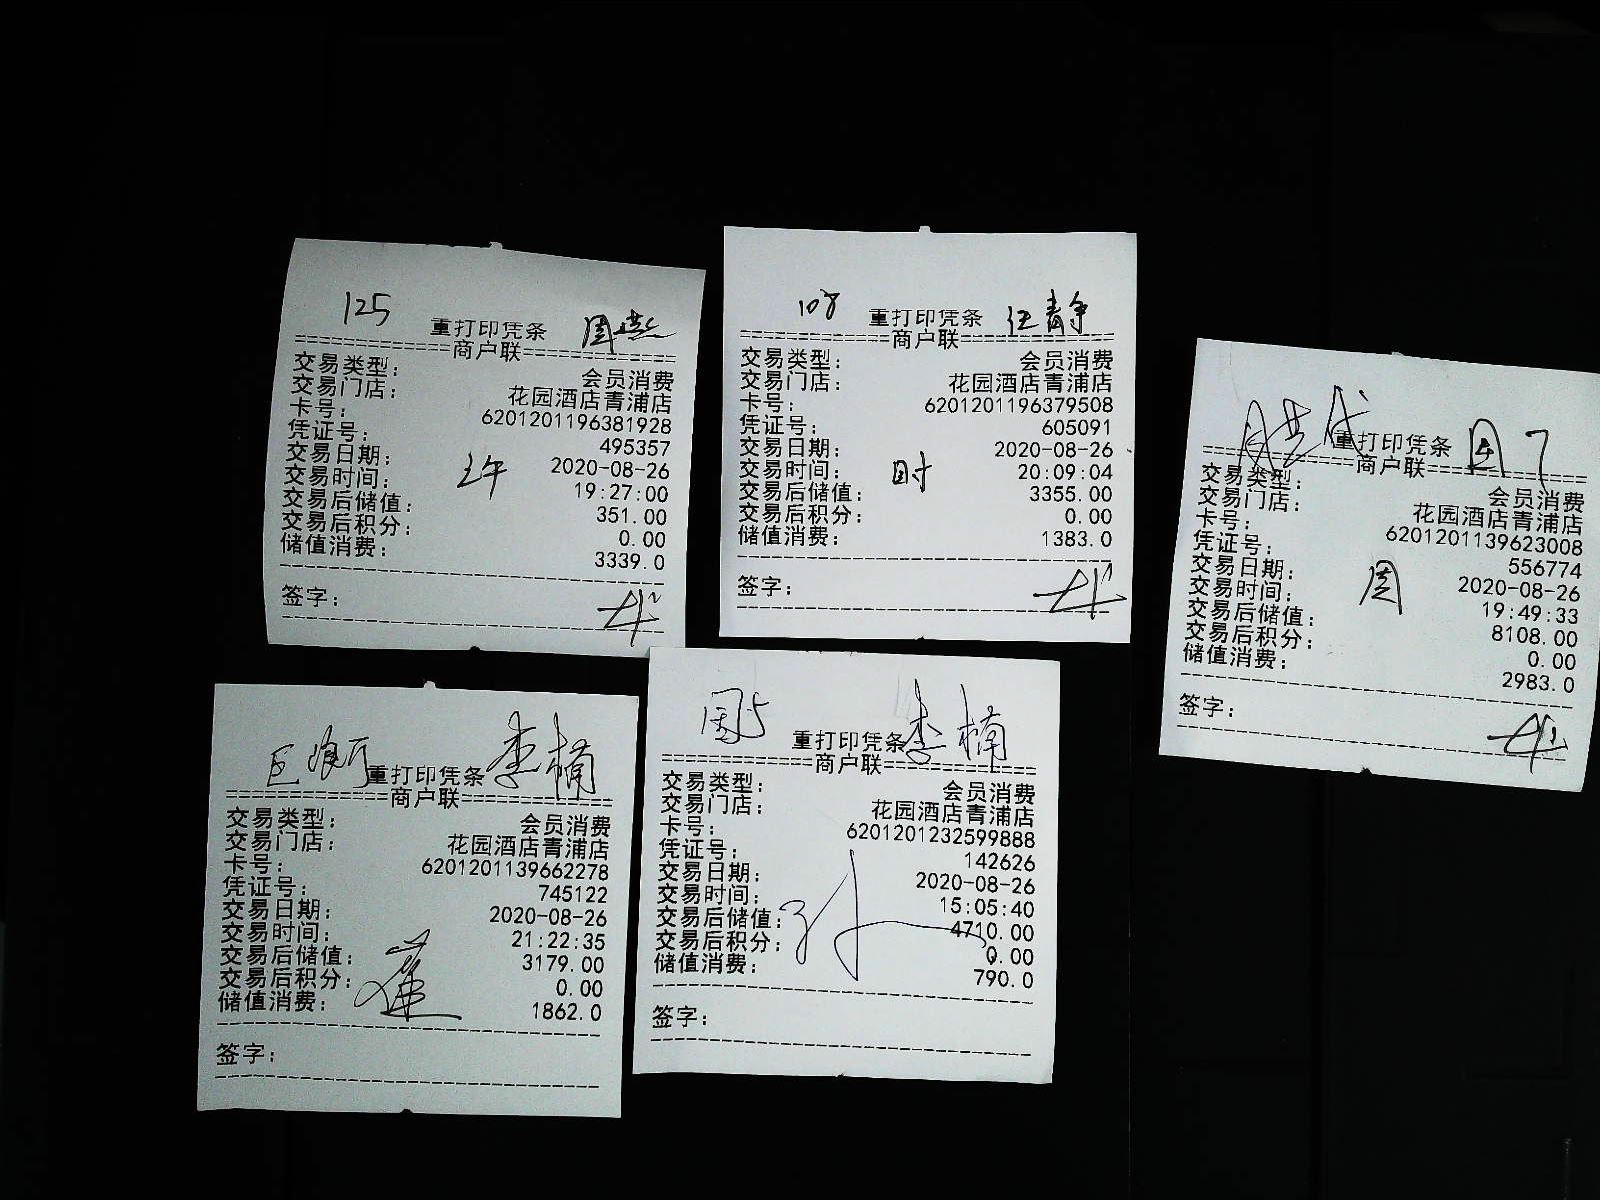 125
重打印凭条 周燕
==========商户联==========
交易类型: 会员消费
交易门店: 花园酒店青浦店
卡号: 6201201196381928
凭证号: 495357
交易日期: 2020-08-26
交易时间: 19:27:00
交易后储值: 351.00
交易后积分: 0.00
储值消费: 3339.0
签字:
108
重打印凭条 汪青争
==========商户联==========
交易类型: 会员消费
交易门店: 花园酒店青浦店
卡号: 6201201196379508
凭证号: 605091
交易日期: 2020-08-26
交易时间: 时 20:09:04
交易后储值: 3355.00
交易后积分: 0.00
储值消费: 1383.0
签字:
重打印凭条
==========商户联==========
交易类型: 会员消费
交易门店: 花园酒店青浦店
卡号: 6201201139623008
凭证号: 556774
交易日期: 2020-08-26
交易时间: 周 19:49:33
交易后储值: 8108.00
交易后积分: 0.00
储值消费: 2983.0
签字:
重打印凭条 李楠
==========商户联==========
交易类型: 会员消费
交易门店: 花园酒店青浦店
卡号: 6201201139662278
凭证号: 745122
交易日期: 2020-08-26
交易时间: 21:22:35
交易后储值: 3179.00
交易后积分: 0.00
储值消费: 1862.0
签字:
重打印凭条 李楠
==========商户联==========
交易类型: 会员消费
交易门店: 花园酒店青浦店
卡号: 6201201232599888
凭证号: 142626
交易日期: 2020-08-26
交易时间: 15:05:40
交易后储值: 4710.00
交易后积分: 0.00
储值消费: 790.0
签字: